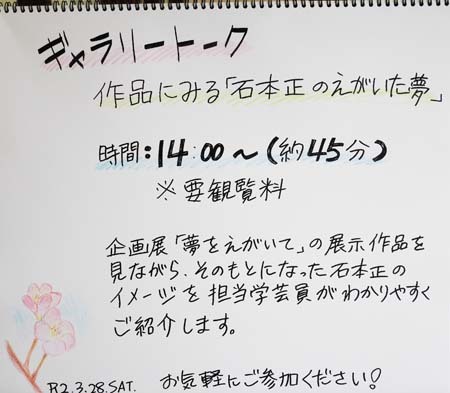 ギャラリートーク
作品にみる「石本正のえがいた夢」
時間:14:00~(約45分)
※要観覧料
企画展「夢をえがいて」の展示作品を
見ながら、そのもとになった石本正の
イメージを担当学芸員がわかりやすく
ご紹介します。
R2.3.28.SAT. お気軽にご参加ください!